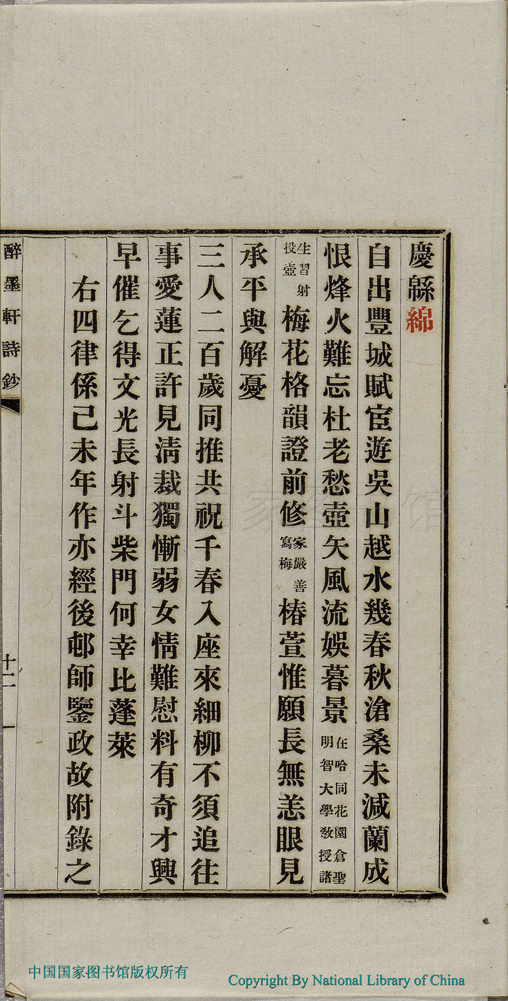 慶緜綿
自出豐城賦宦遊吳山越水幾春秋滄桑未減蘭成
恨烽火難忘杜老愁壺矢風流娛暮景在哈同花園倉聖明智大學教授諸
生習射投壺梅花格韻證前修家嚴善寫梅椿萱惟願長無恙眼見
承平與解憂
三人二百歲同推共祝千春入座來細柳不須追往
事愛蓮正許見清裁獨慚弱女情難慰料有奇才興
早催乞得文光長射斗柴門何幸比蓬萊
右四律係己未年作亦經後邨師鑒政故附錄之
醉墨軒詩鈔
十二
中国国家图书馆版权所有
Copyright By National Library of China